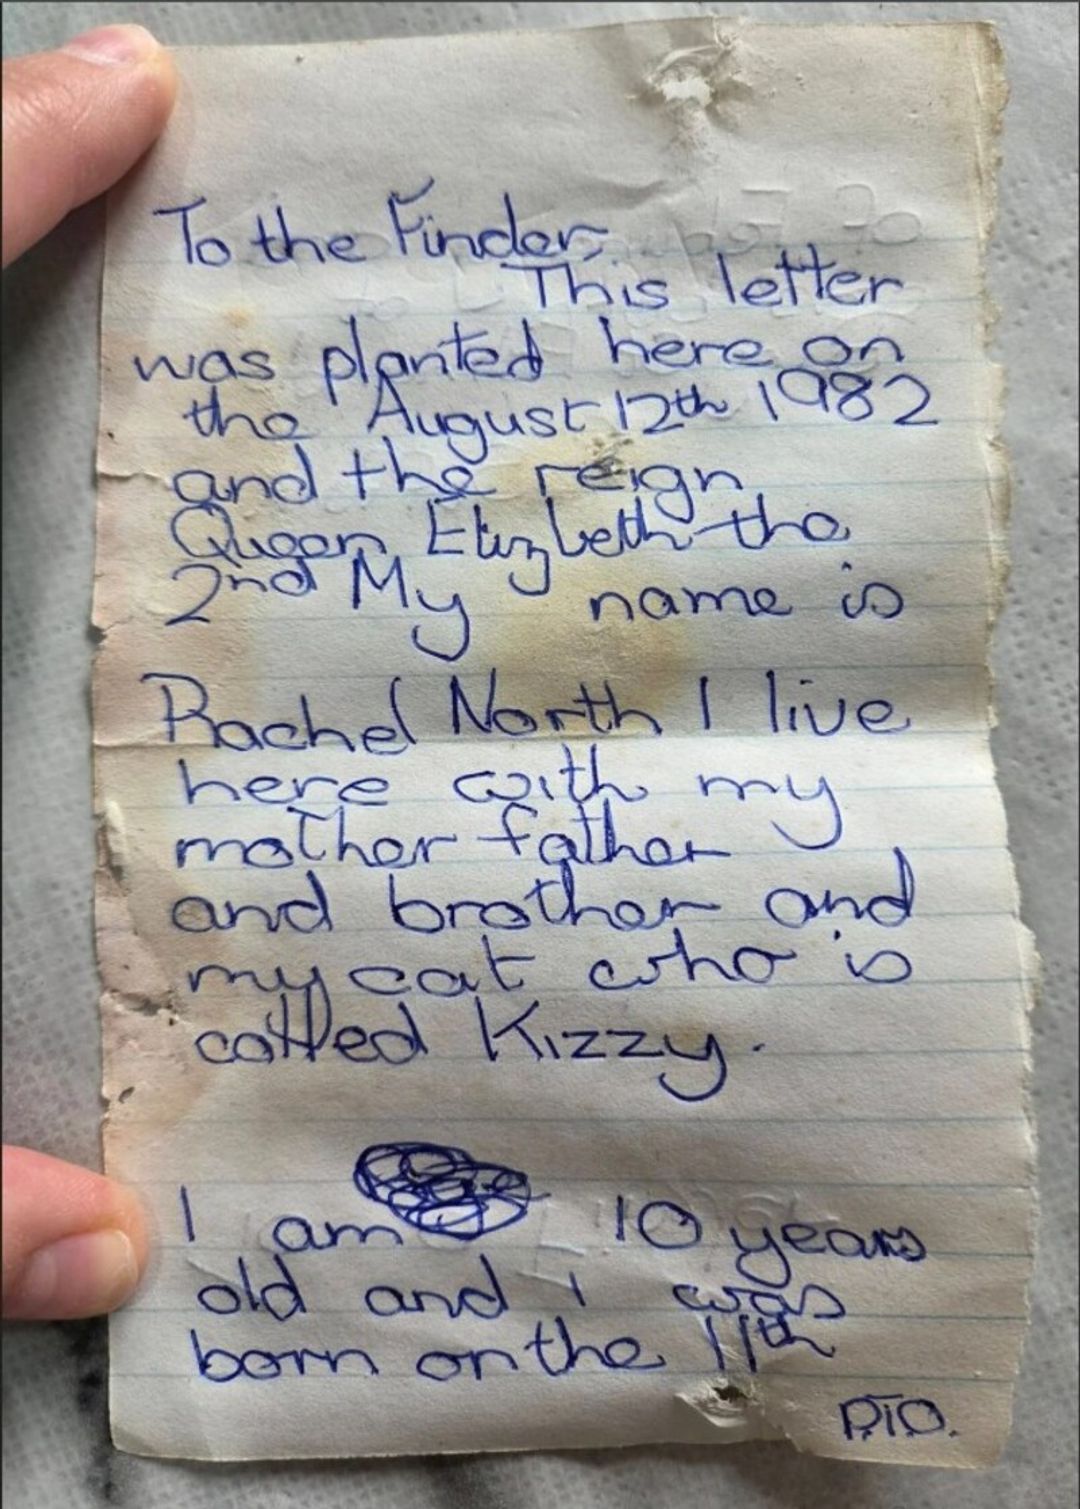 To the Finder,
This letter
was planted here on
the August 12th 1982
and the reign
Queen Elizabeth the
2nd My name is
Rachel North I live
here with my
mother father
and brother and
my cat who is
called Kizzy.
I am 10 years
old and I was
born on the 11th
P.T.O.